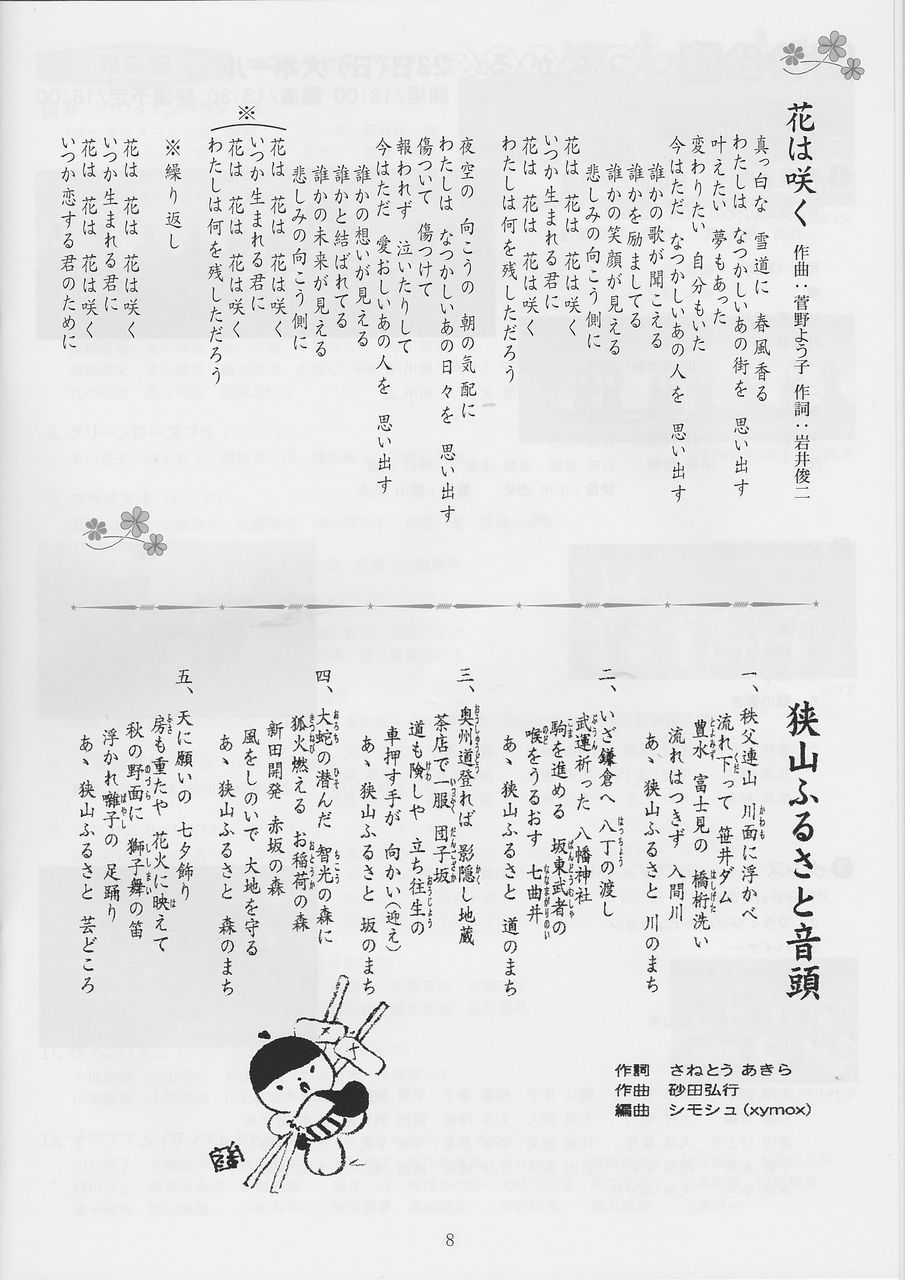 花は咲く 作曲:菅野よう子 作詞:岩井俊二
真っ白な 雪道に 春風香る
わたしは なつかしいあの街を 思い出す
叶えたい 夢もあった
変わりたい 自分もいた
今はただ なつかしいあの人を 思い出す
誰かの歌が聞こえる
誰かを励ましてる
誰かの笑顔が見える
悲しみの向こう側に
花は 花は 花は咲く
いつか生まれる君に
花は 花は 花は咲く
わたしは何を残しただろう
夜空の 向こうの 朝の気配に
わたしは なつかしいあの日々を 思い出す
傷ついて 傷つけて
報われず 泣いたりして
今はただ 愛おしいあの人を 思い出す
誰かの想いが見える
誰かと結ばれてる
誰かの未来が見える
悲しみの向こう側に
※
花は 花は 花は咲く
いつか生まれる君に
花は 花は 花は咲く
わたしは何を残しただろう
※繰り返し
花は 花は 花は咲く
いつか生まれる君に
花は 花は 花は咲く
いつか恋する君のために
狭山ふるさと音頭
一、秩父連山 川面に浮かべ
流れ下って 笹井ダム
豊水 富士見の 橋桁洗い
流れはつきず 入間川
あゝ 狭山ふるさと 川のまち
二、いざ鎌倉へ 八丁の渡し
武運祈った 八幡神社
駒を進める 坂東武者の
喉をうるおす 七曲井
あゝ 狭山ふるさと 道のまち
三、奥州道登れば 影隠し地蔵
茶店で一服 団子坂
道も険しや 立ち往生の
車押す手が 向かい(迎え)
あゝ 狭山ふるさと 坂のまち
四、大蛇の潜んだ 智光の森に
狐火燃える お稲荷の森
新田開発 赤坂の森
風をしのいで 大地を守る
あゝ 狭山ふるさと 森のまち
五、天に願いの 七夕飾り
房も重たや 花火に映えて
秋の野面に 獅子舞の笛
浮かれ囃子の 足踊り
あゝ 狭山ふるさと 芸どころ
作詞 さねとう あきら
作曲 砂田弘行
編曲 シモシュ(xymox)
8